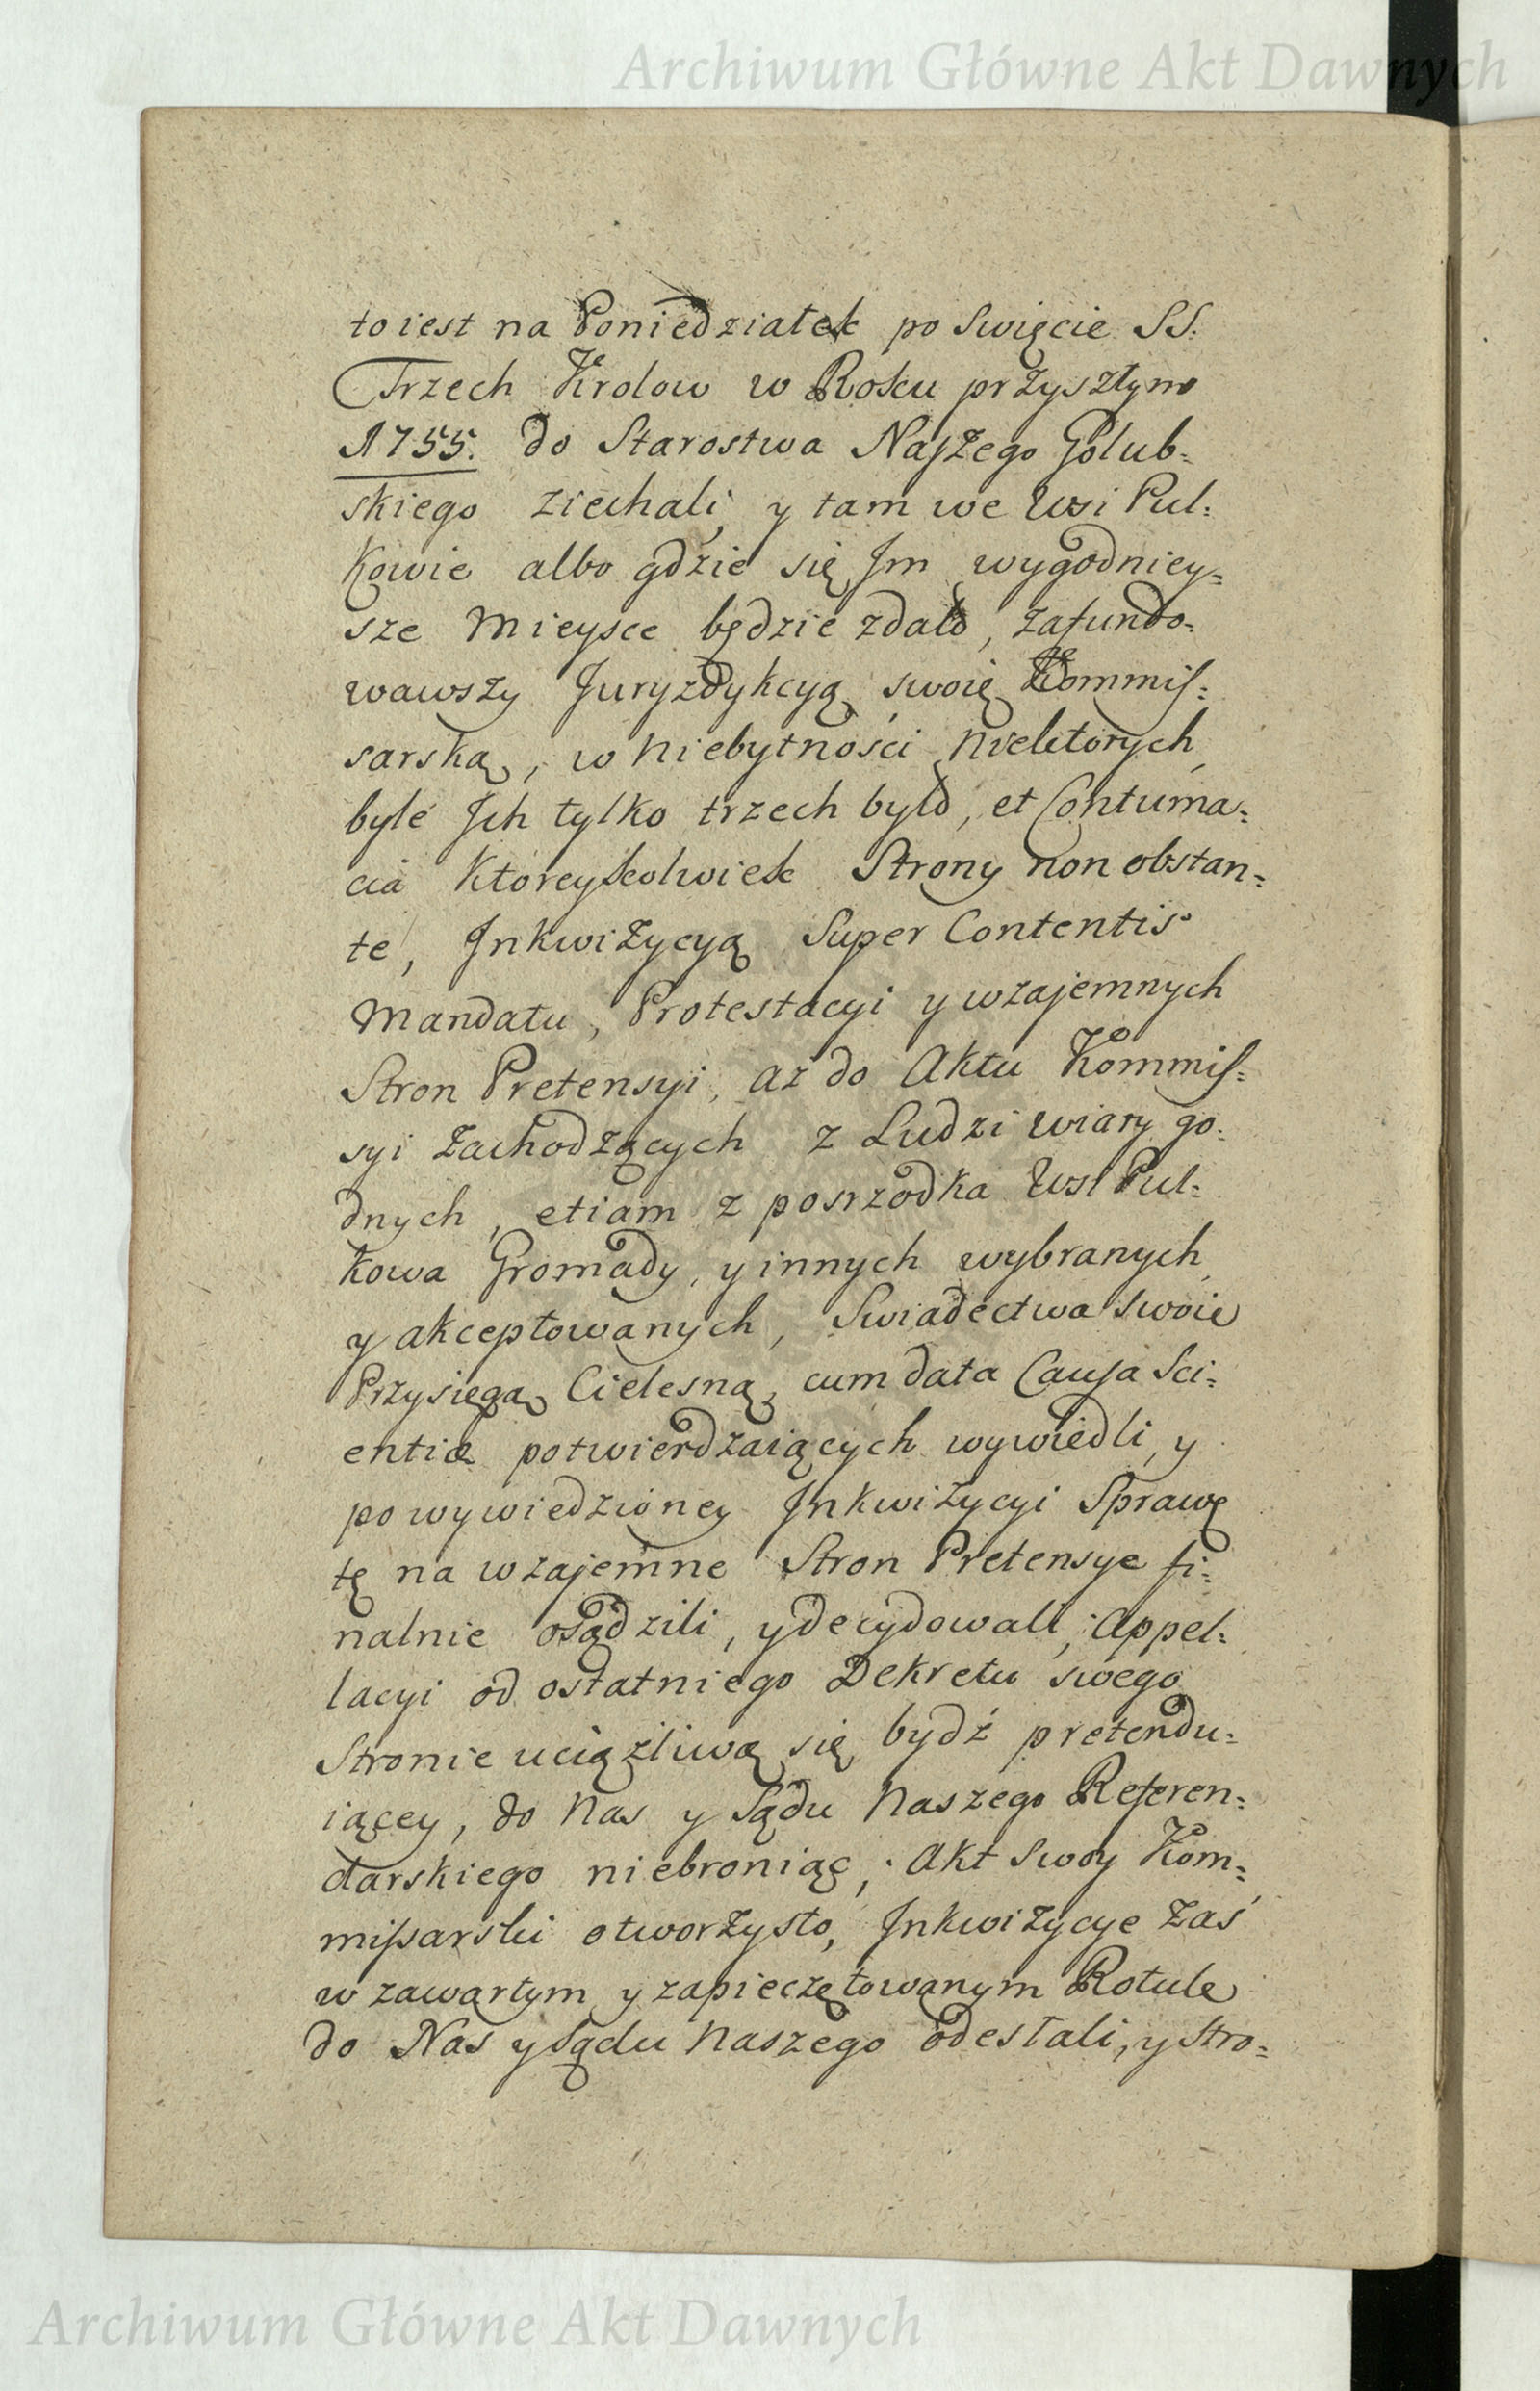 Archiwum Główne Akt Dawnych
to iest na Poniedziałek po Swięcie SS.
Trzech Krolow w Roku przyszłym
1755. do Starostwa Naszego Golub=
skiego ziechali, y tam we Wsi Pul=
kowie albo gdzie się Im wygodniey=
sze Mieysce będzie zdało, zafundo=
wawszy Juryzdykcyą swoię Kommis=
sarską, w niebytności niektorych,
byle Ich tylko trzech było, et Contuma=
cia ktoreykolwiek Strony non obstan=
te, Inkwizycyą Super Contentis
Mandatu, Protestacyi y wzajemnych
Stron Pretensyi, aż do Aktu Kommis=
syi zachodzących z Ludzi wiary go=
dnych, etiam z posrzodka Wsi Pul=
kowa Gromady, y innych wybranych,
y akceptowanych, Swiadectwa swoie
Przysięgą Cielesną, cum data Causa Sci=
entiæ potwierdzaiących wywiedli, y
po wywiedzioney Inkwizycyi Sprawę
tę na wzajemne Stron Pretensye fi=
nalnie osądzili, y decydowali, Appel=
lacyi od ostatniego Dekretu swego
Stronie uciążliwą się bydź pretendu=
iącey, do Nas y Sądu Naszego Referen=
darskiego niebroniąc, Akt Swoy Kom=
missarski otworzysto, Inkwizycye zaś
w zawartym y zapieczętowanym Rotule
do Nas y Sądu Naszego odesłali, y Stro=
Archiwum Główne Akt Dawnych